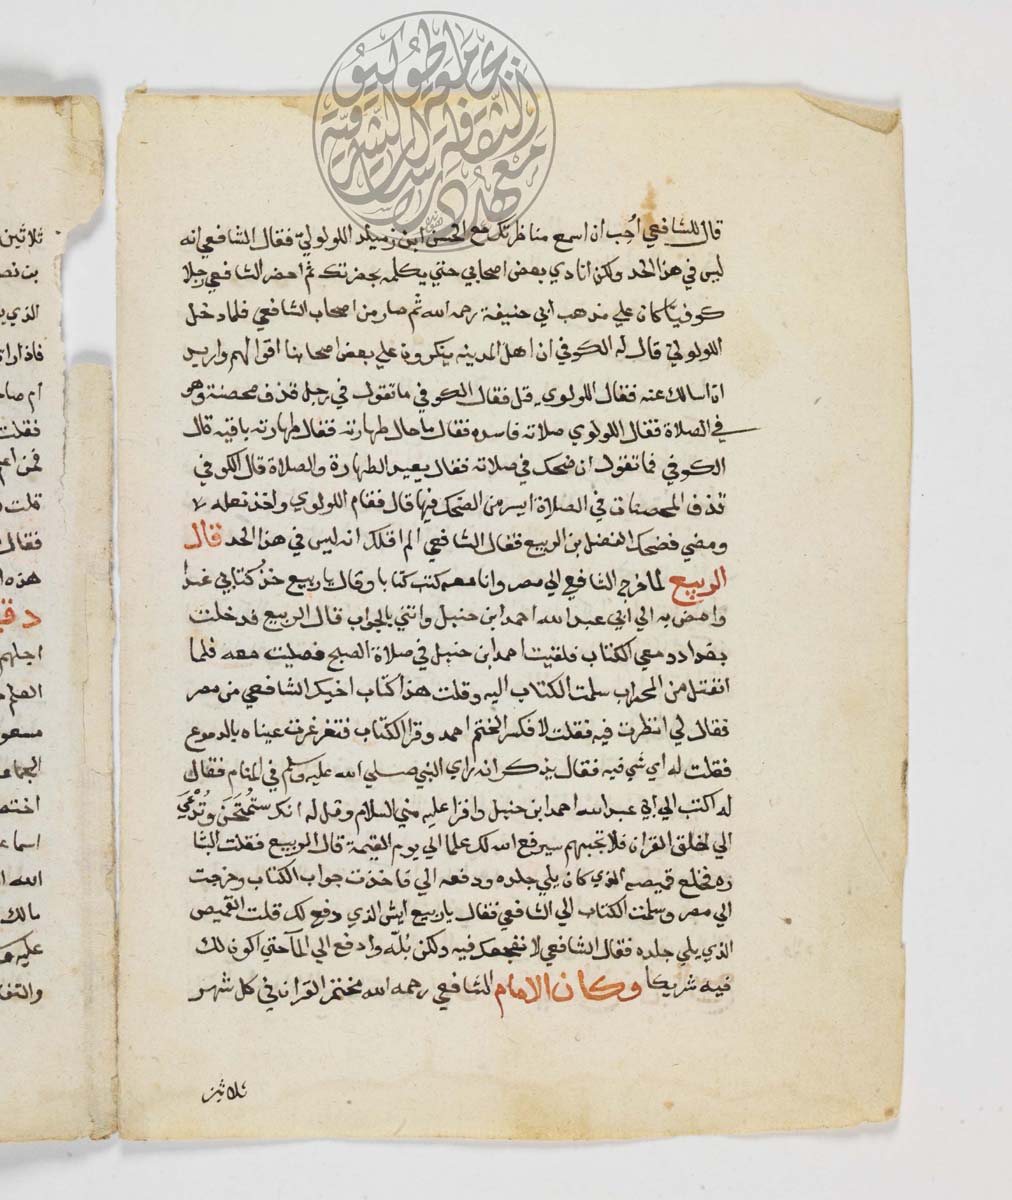 قال للشافعي أحب ان اسمع مناظرتك مع الحسن ابن زياد اللولوي فقال الشافعي انه
ليس في هذا الحد ولكن انا دي بعض اصحابي حتي يكلمه بحضرتك ثم احضر الشافعي رجلا
كوفيا كان علي مذهب ابي حنيفة رحمه الله ثم صار من اصحاب الشافعي فلما دخل
اللولوي قال له الكوفي ان اهل المدينه ينكرون علي بعض اصحابنا اقوالهم واريد
ان اسالك عنه فقال اللولوي قل فقال الكوفي ما تقول في رجل قذف محصنة وهو
في الصلاة فقال اللولوي صلاته فاسده فقال ما حال طهارته فقال طهارته باقيه قال
الكوفي فما تقول ان ضحك في صلاته فقال يعيد الطهارة والصلاة قال الكوفي
قذف المحصنات في الصلاة ايسر من الضحك فيها قال فقام اللولوي واخذ نعله
ومضي فضحك الفضل بن الربيع فقال الشافعي الم اقل لك انه ليس في هذا الحد قال
الربيع لما خرج الشافعي الي مصر وانا معه كتب كتابا وقال يا ربيع خذ كتابي هذا
وامض به الي ابي عبد الله احمد ابن حنبل وائتني بالجواب قال الربيع فدخلت
بغداد ومعي الكتاب فلقيت احمد ابن حنبل في صلاة الصبح فصليت معه فلما
انفتل من المحراب سلمت الكتاب اليه وقلت هذا كتاب اخيك الشافعي من مصر
فقال لي انظرت فيه فقلت لا فكسر الختم احمد وقرا الكتاب فتغرغرت عيناه بالدموع
فقلت له اي شي فيه فقال يذكر انه راي النبي صلي الله عليه وسلم في المنام فقال
له اكتب الي ابي عبد الله احمد ابن حنبل واقرا عليه مني السلام وقل له انك ستُمتحَن وتُدْعَي
الي خلق القران فلا تجبهم سيرفع الله لك علما الي يوم القيمة قال الربيع فقلت البشا
ره فخلع قميصه الذي كان يلي جلده ودفعه الي فاخذت جواب الكتاب وخرجت
الي مصر وسلمت الكتاب الي الشافعي فقال يا ربيع ايش الذي دفع لك قلت القميص
الذي يلي جلده فقال الشافعي لا نفجعك فيه ولكن بُلّه وادفع الي المآ حتي اكون لك
فيه شريكا وكان الامام الشافعي رحمه الله يختم القران في كل شهر
ثلاثين
ثلاثين
الذي
فاذا
ام
فقلت
قلت
فقال
هذه
اجلهم
مسعو
اسما
الله
مالك
عليه
معهد الثقافة والدراسات الشرقية
جامعة طوكيو